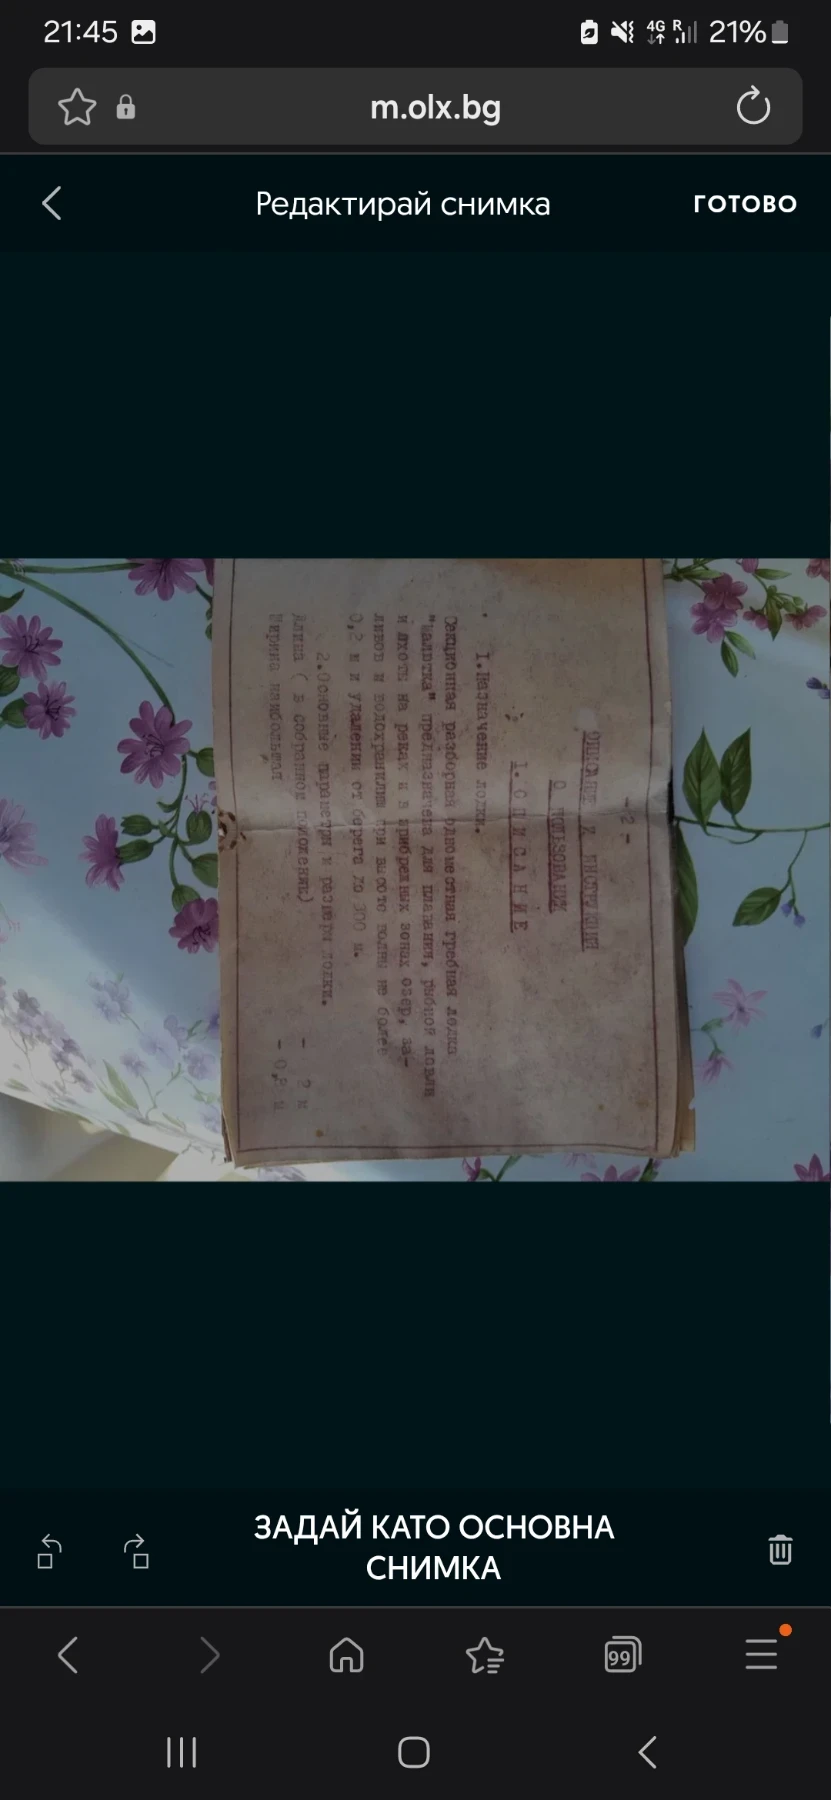 21:45
4G R 21%
m.olx.bg
Редактирай снимка
ГОТОВО
- 2 -
ОПИСАНИЕ И ИНСТРУКЦИЯ
О ПОЛЬЗОВАНИИ
I. О П И С А Н И Е
I. Назначение лодки.
Секционная разборная одноместная гребная лодка
"Малютка" предназначена для плавания, рыбной ловли
и охоты на реках и в прибрежных зонах озер, за-
ливов и водохранилищ при высоте волны не более
0,2 м и удалении от берега до 300 м.
2. Основные параметры и размеры лодки.
Длина ( в собранном положении) - 2 м
Ширина наибольшая - 0, м
ЗАДАЙ КАТО ОСНОВНА
СНИМКА
99